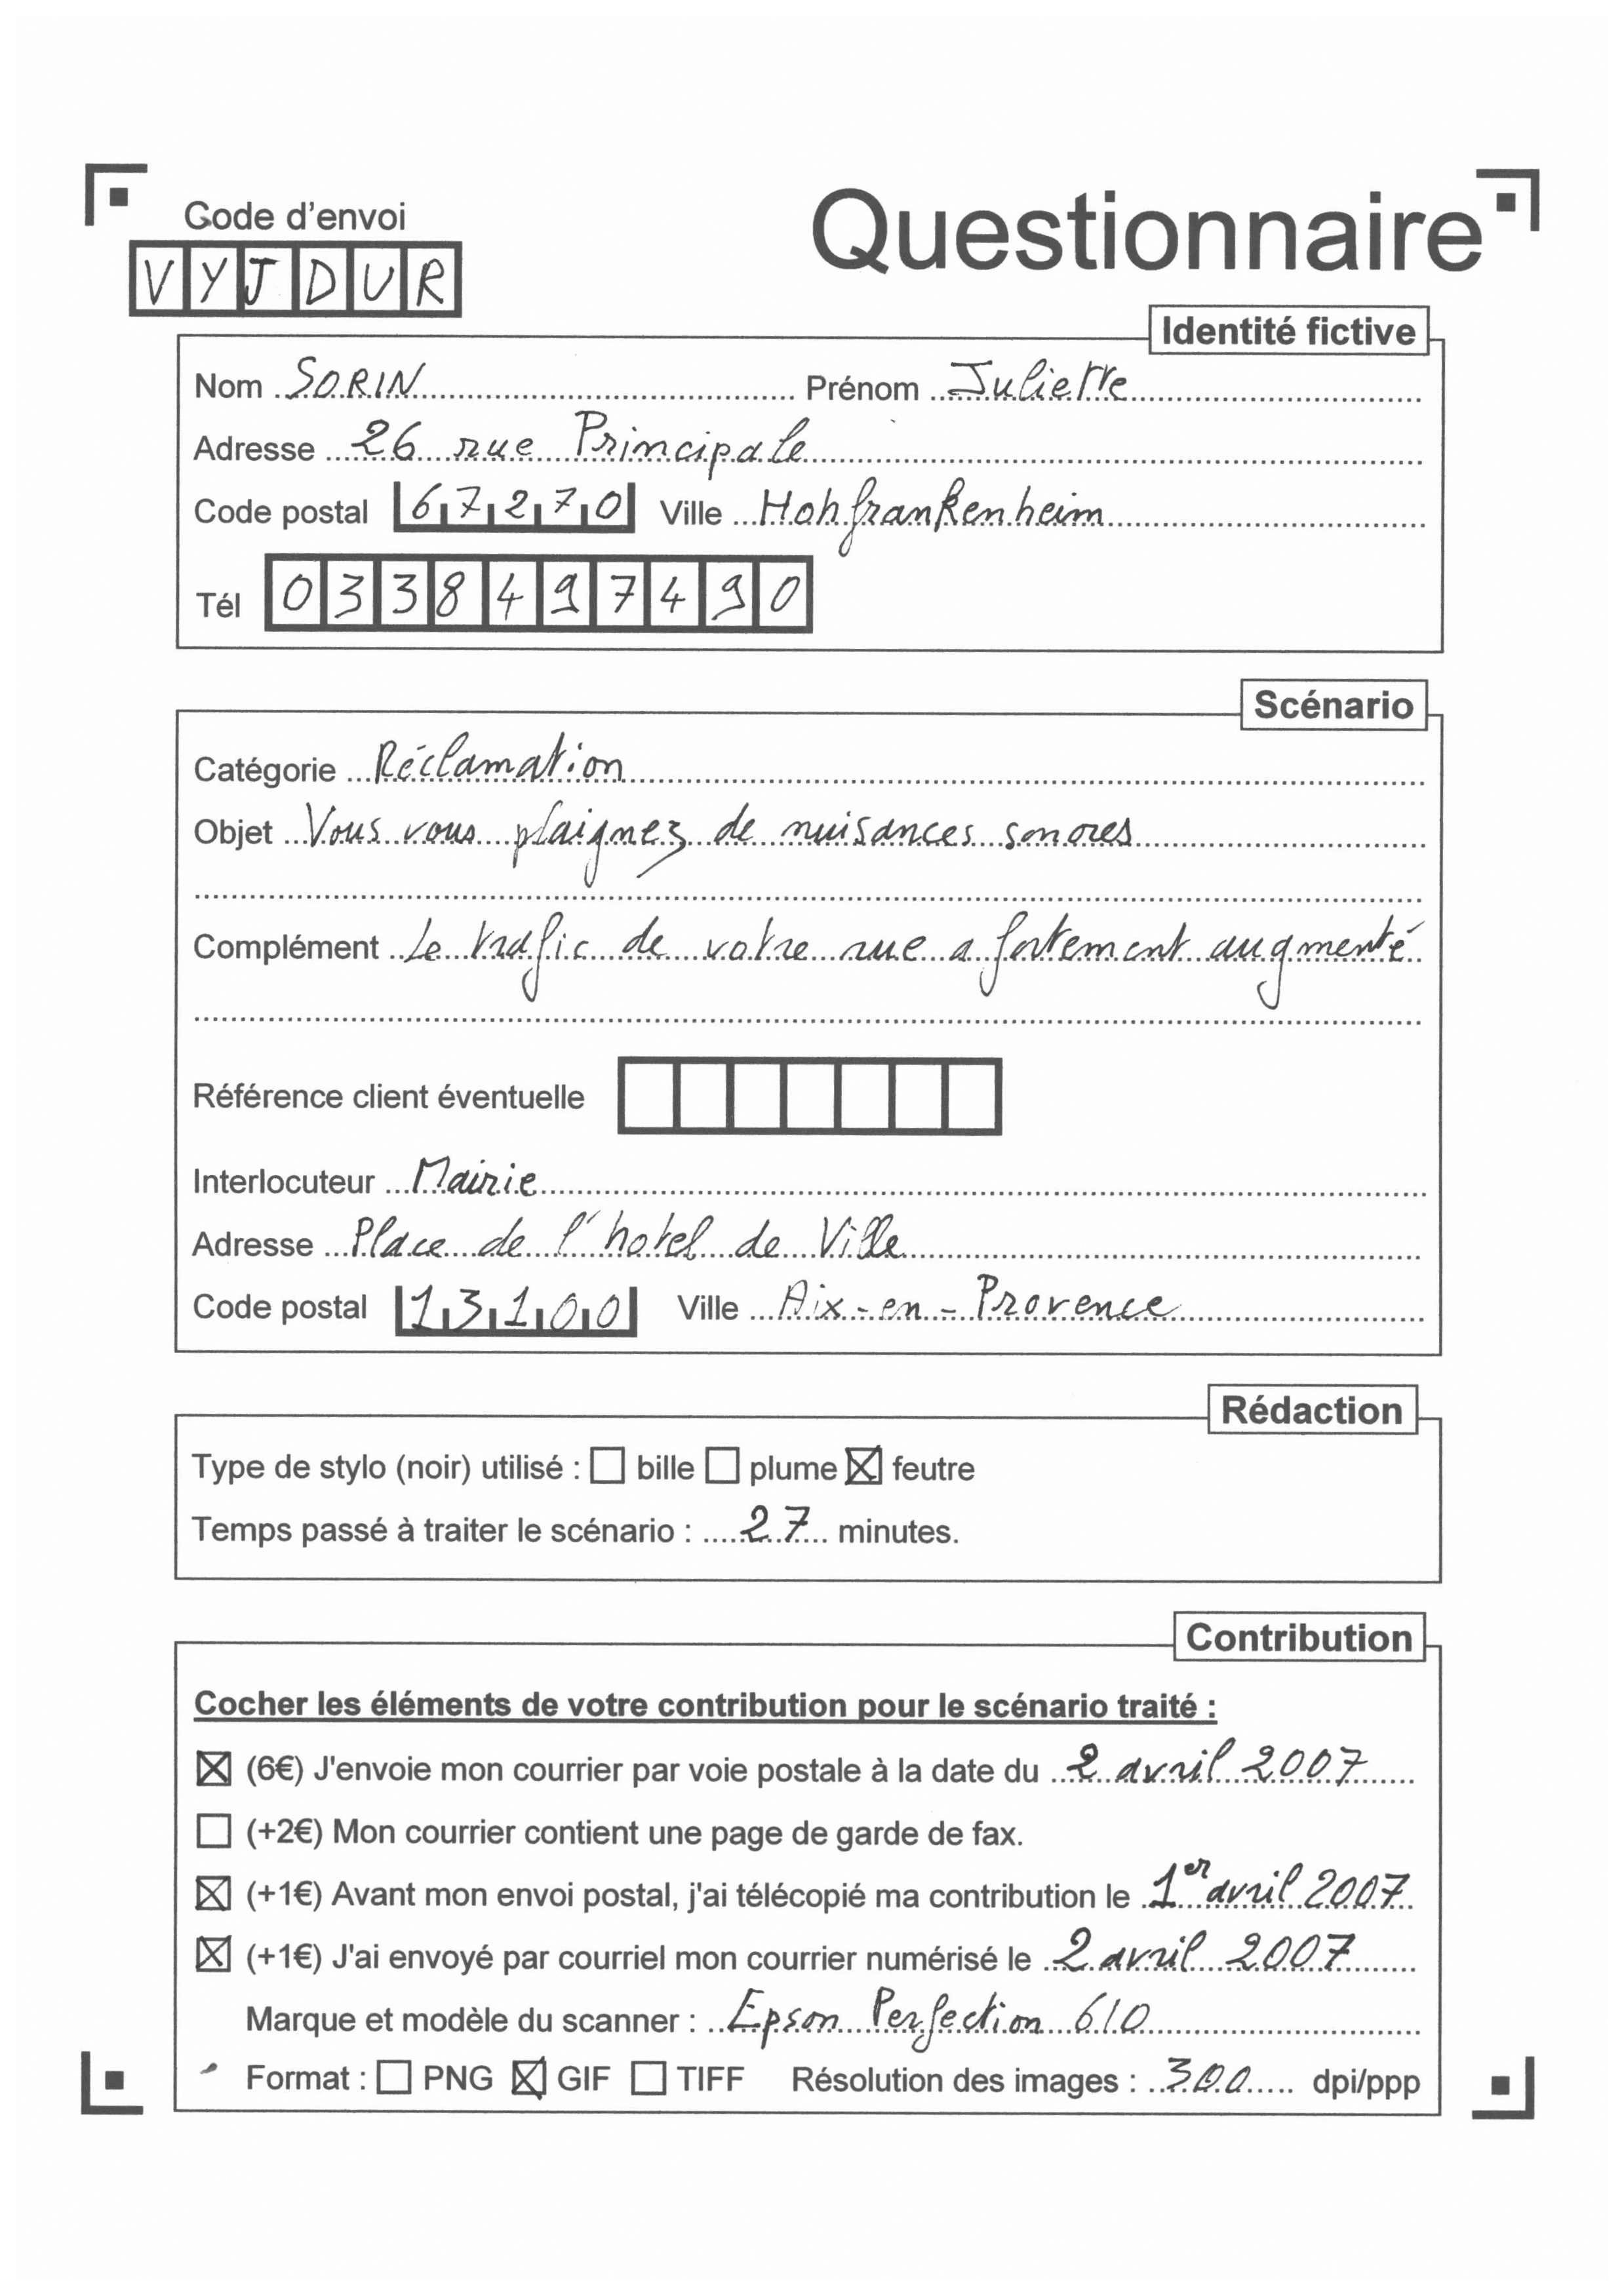 Code d'envoi
Questionnaire
VYJDUR
Identité fictive
Nom SORIN Prénom Juliette
Adresse 26 rue Principale
Code postal 67270 Ville Hohfrankenheim
Tél 0338497490
Scénario
Catégorie Réclamation
Objet Vous vous plaignez de nuisances sonores
Complément Le trafic de votre rue a fortement augmenté
Référence client éventuelle
Interlocuteur Mairie
Adresse Place de l'hotel de Ville
Code postal 13100 Ville Aix-en-Provence
Rédaction
Type de stylo (noir) utilisé : ☐ bille ☐ plume ☒ feutre
Temps passé à traiter le scénario : 27 minutes.
Contribution
Cocher les éléments de votre contribution pour le scénario traité :
☒ (6€) J'envoie mon courrier par voie postale à la date du 2 avril 2007
☐ (+2€) Mon courrier contient une page de garde de fax.
☒ (+1€) Avant mon envoi postal, j'ai télécopié ma contribution le 1er avril 2007
☒ (+1€) J'ai envoyé par courriel mon courrier numérisé le 2 avril 2007
Marque et modèle du scanner : Epson Perfection 610
Format : ☐ PNG ☒ GIF ☐ TIFF Résolution des images : 300 dpi/ppp